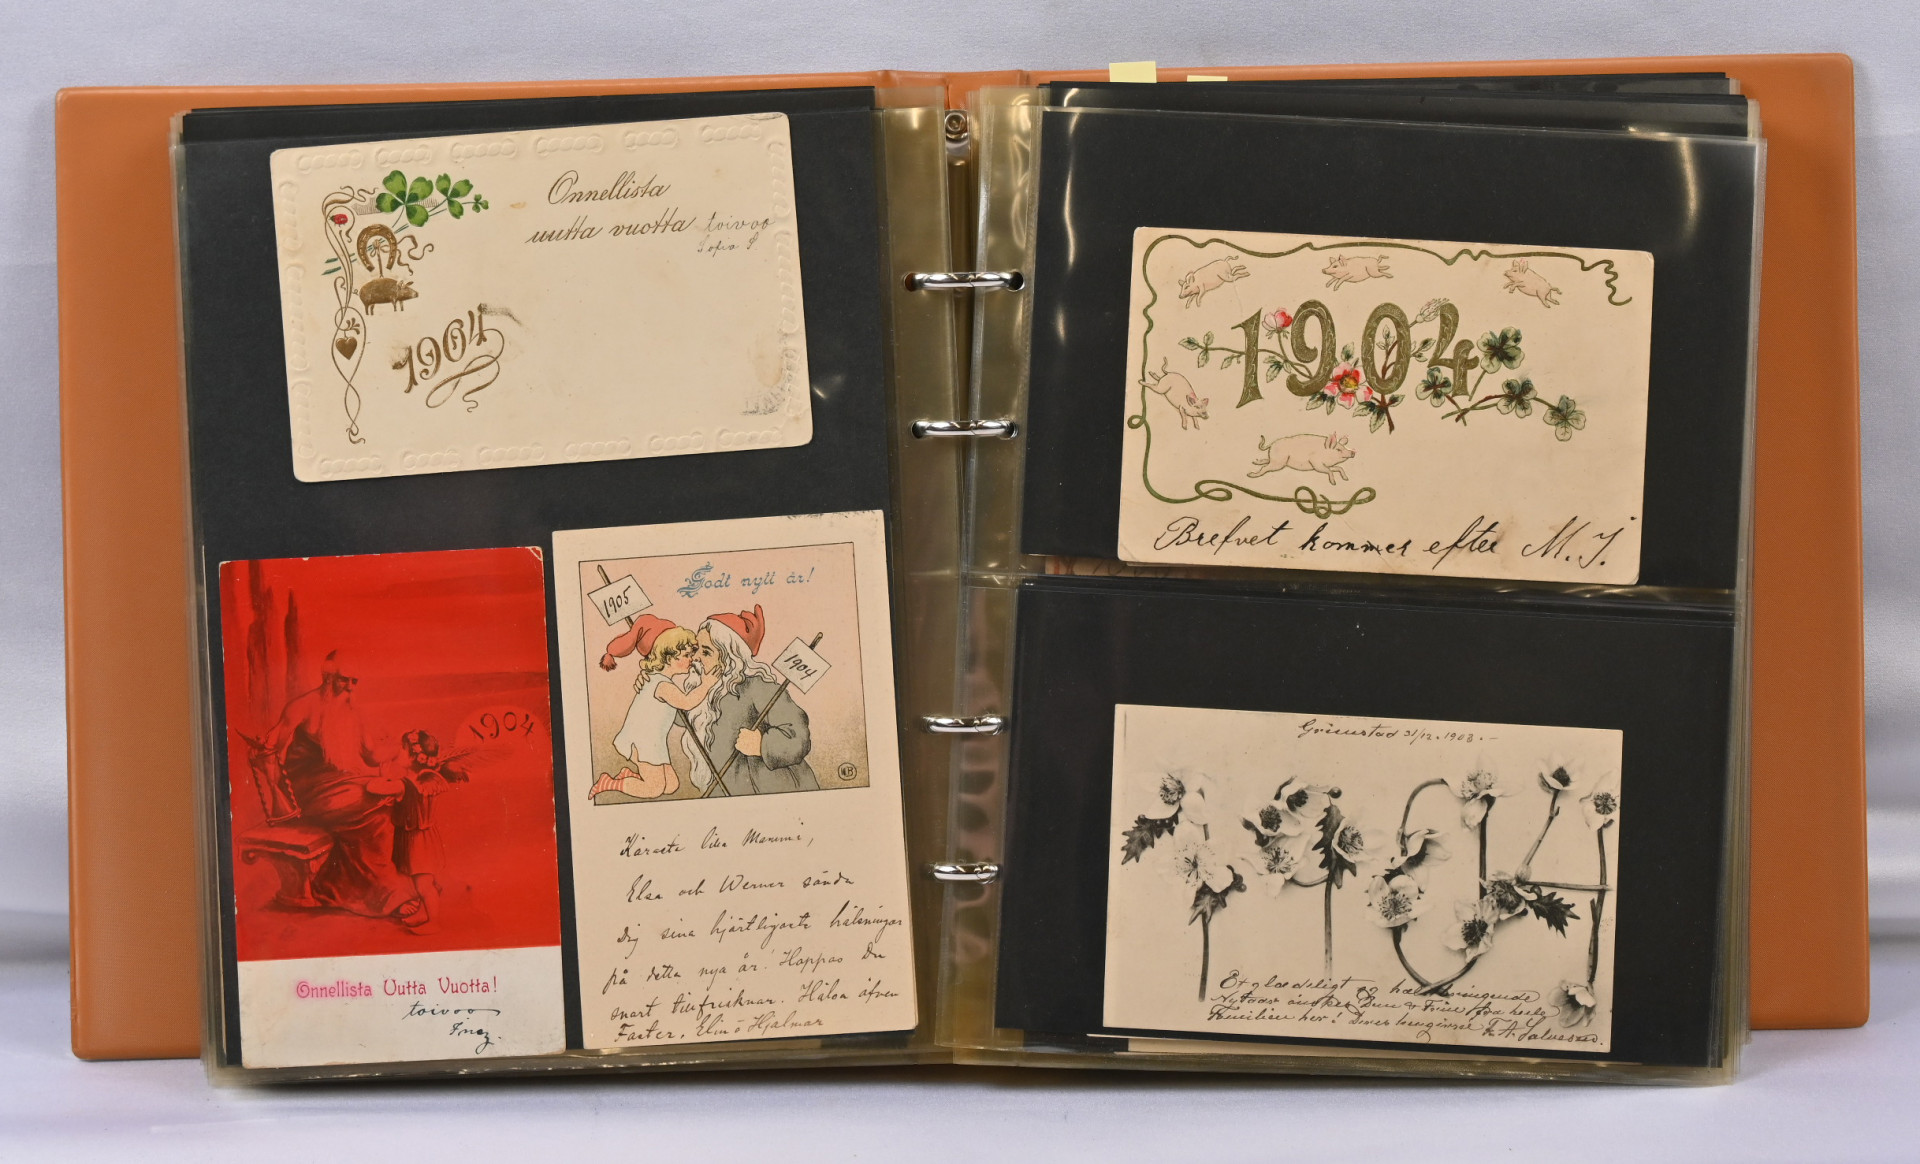 Onnellista
uutta vuotta toivoo
Sofia S
1904
1904
Onnellista Uutta Vuotta!
toivoo
Godt nytt år!
1905
1904
HB
Käraste lilla Mammi,
Elsa och Werner sända
Dig sina hjärtligaste hälsningar
på detta nya år! Hoppas Du
snart tillfrisknar. Hälsa äfven
Faster, Elin o Hjalmar
1904
Brefvet kommer efter M. J.
Grimstad 31/12. 1903. –
1904
Et glædeligt og velsignende
Nytaar ønskes Dem og Frue fra hele
Familien her! Deres hengivne